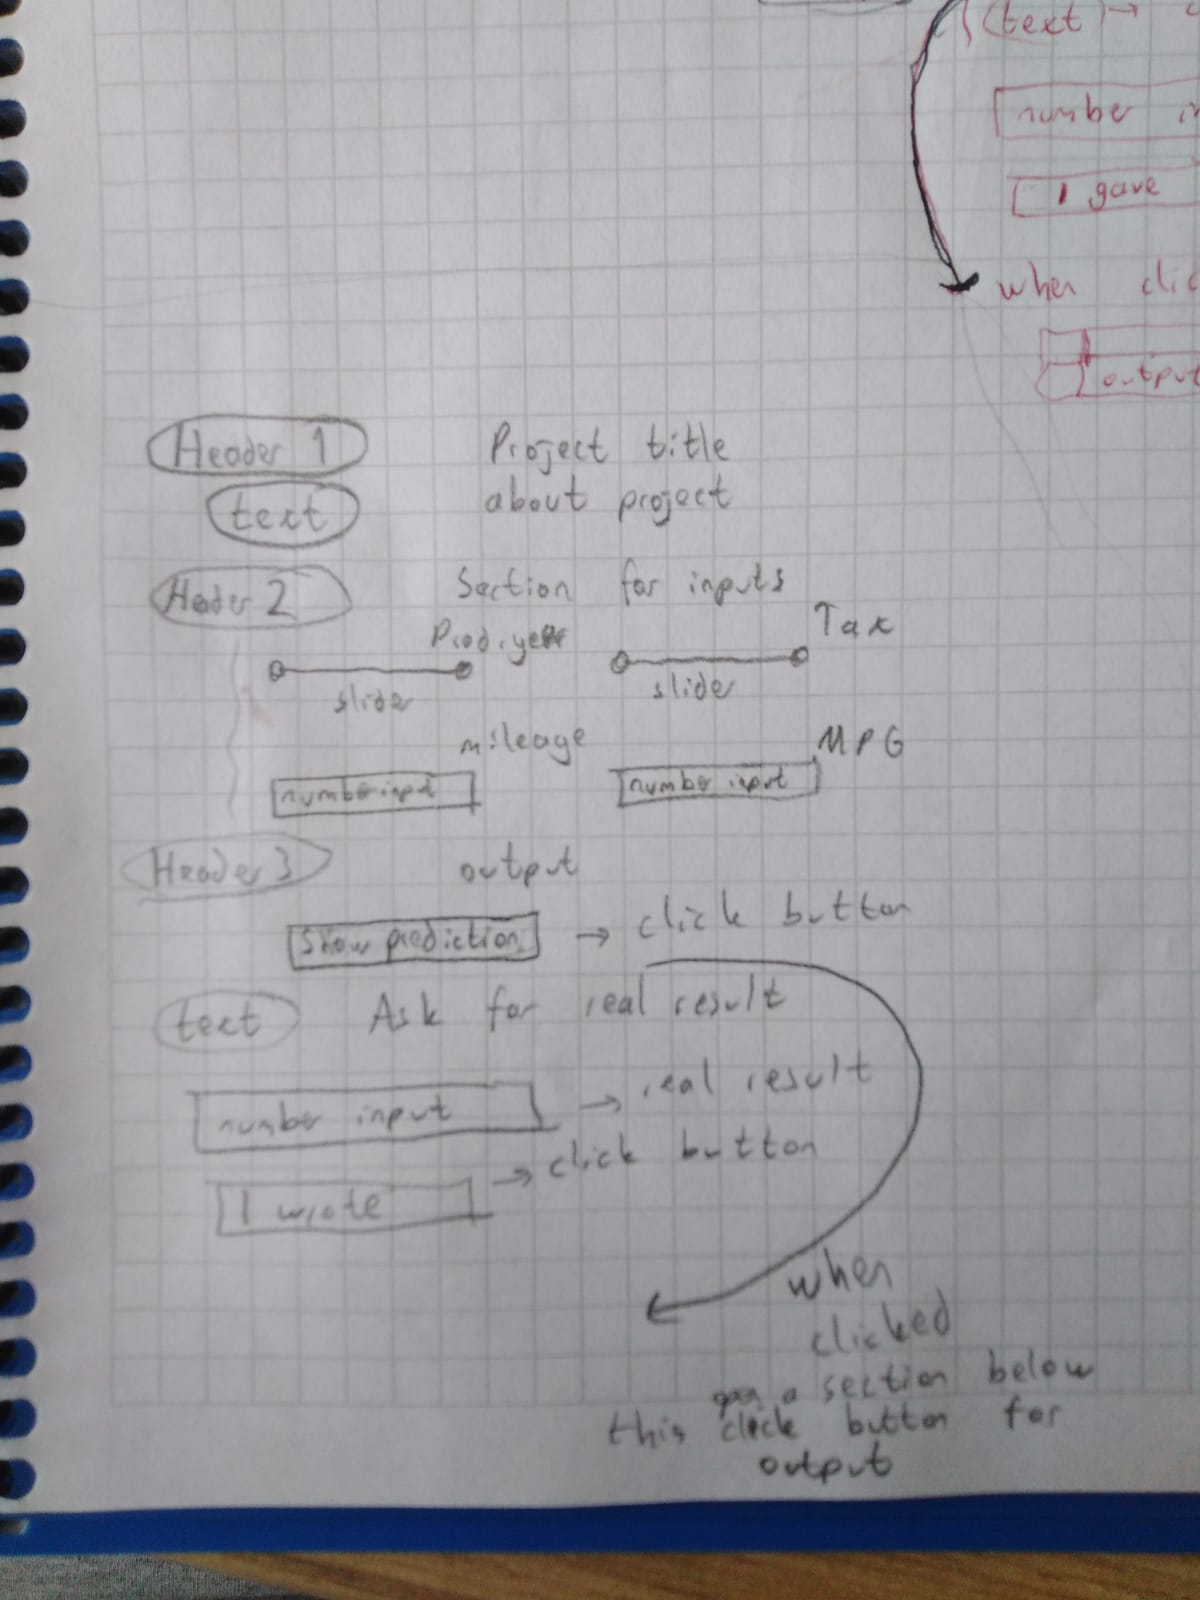 (text) →
number
I gave
when clic
output
Header 1 Project title
text about project
Header 2 Section for inputs
Prod.year Tax
slider slider
mileage MPG
number input number input
Header 3 output
Show prediction → click button
text Ask for real result
number input → real result
I wrote → click button
when
clicked
a section below
this click button for
output